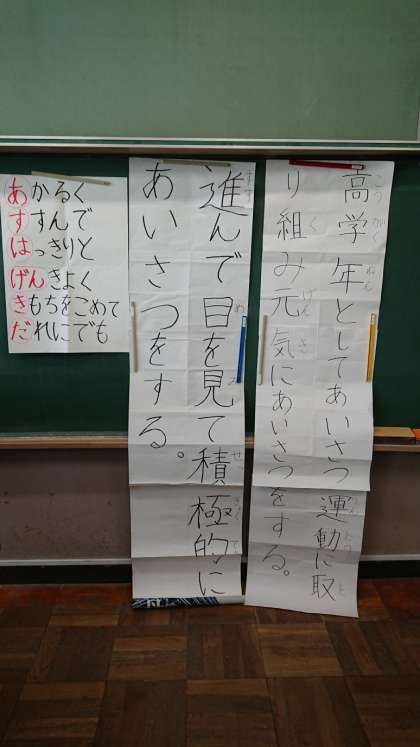 高学年としてあいさつ運動に取
り組み元気にあいさつをする。
進んで目を見て積極的に
あいさつをする。
あかるく
すすんで
はっきりと
げんきよく
きもちをこめて
だれにでも